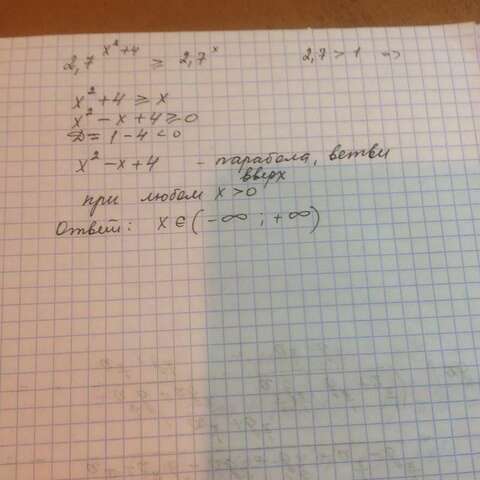 2,7^(x²+4) ≥ 2,7^x 2,7 > 1 =>
x² + 4 ≥ x
x² - x + 4 ≥ 0
D = 1 - 4 < 0
x² - x + 4 - парабола, ветви
вверх
при любом x > 0
Ответ: x ∈ (-∞ ; +∞)